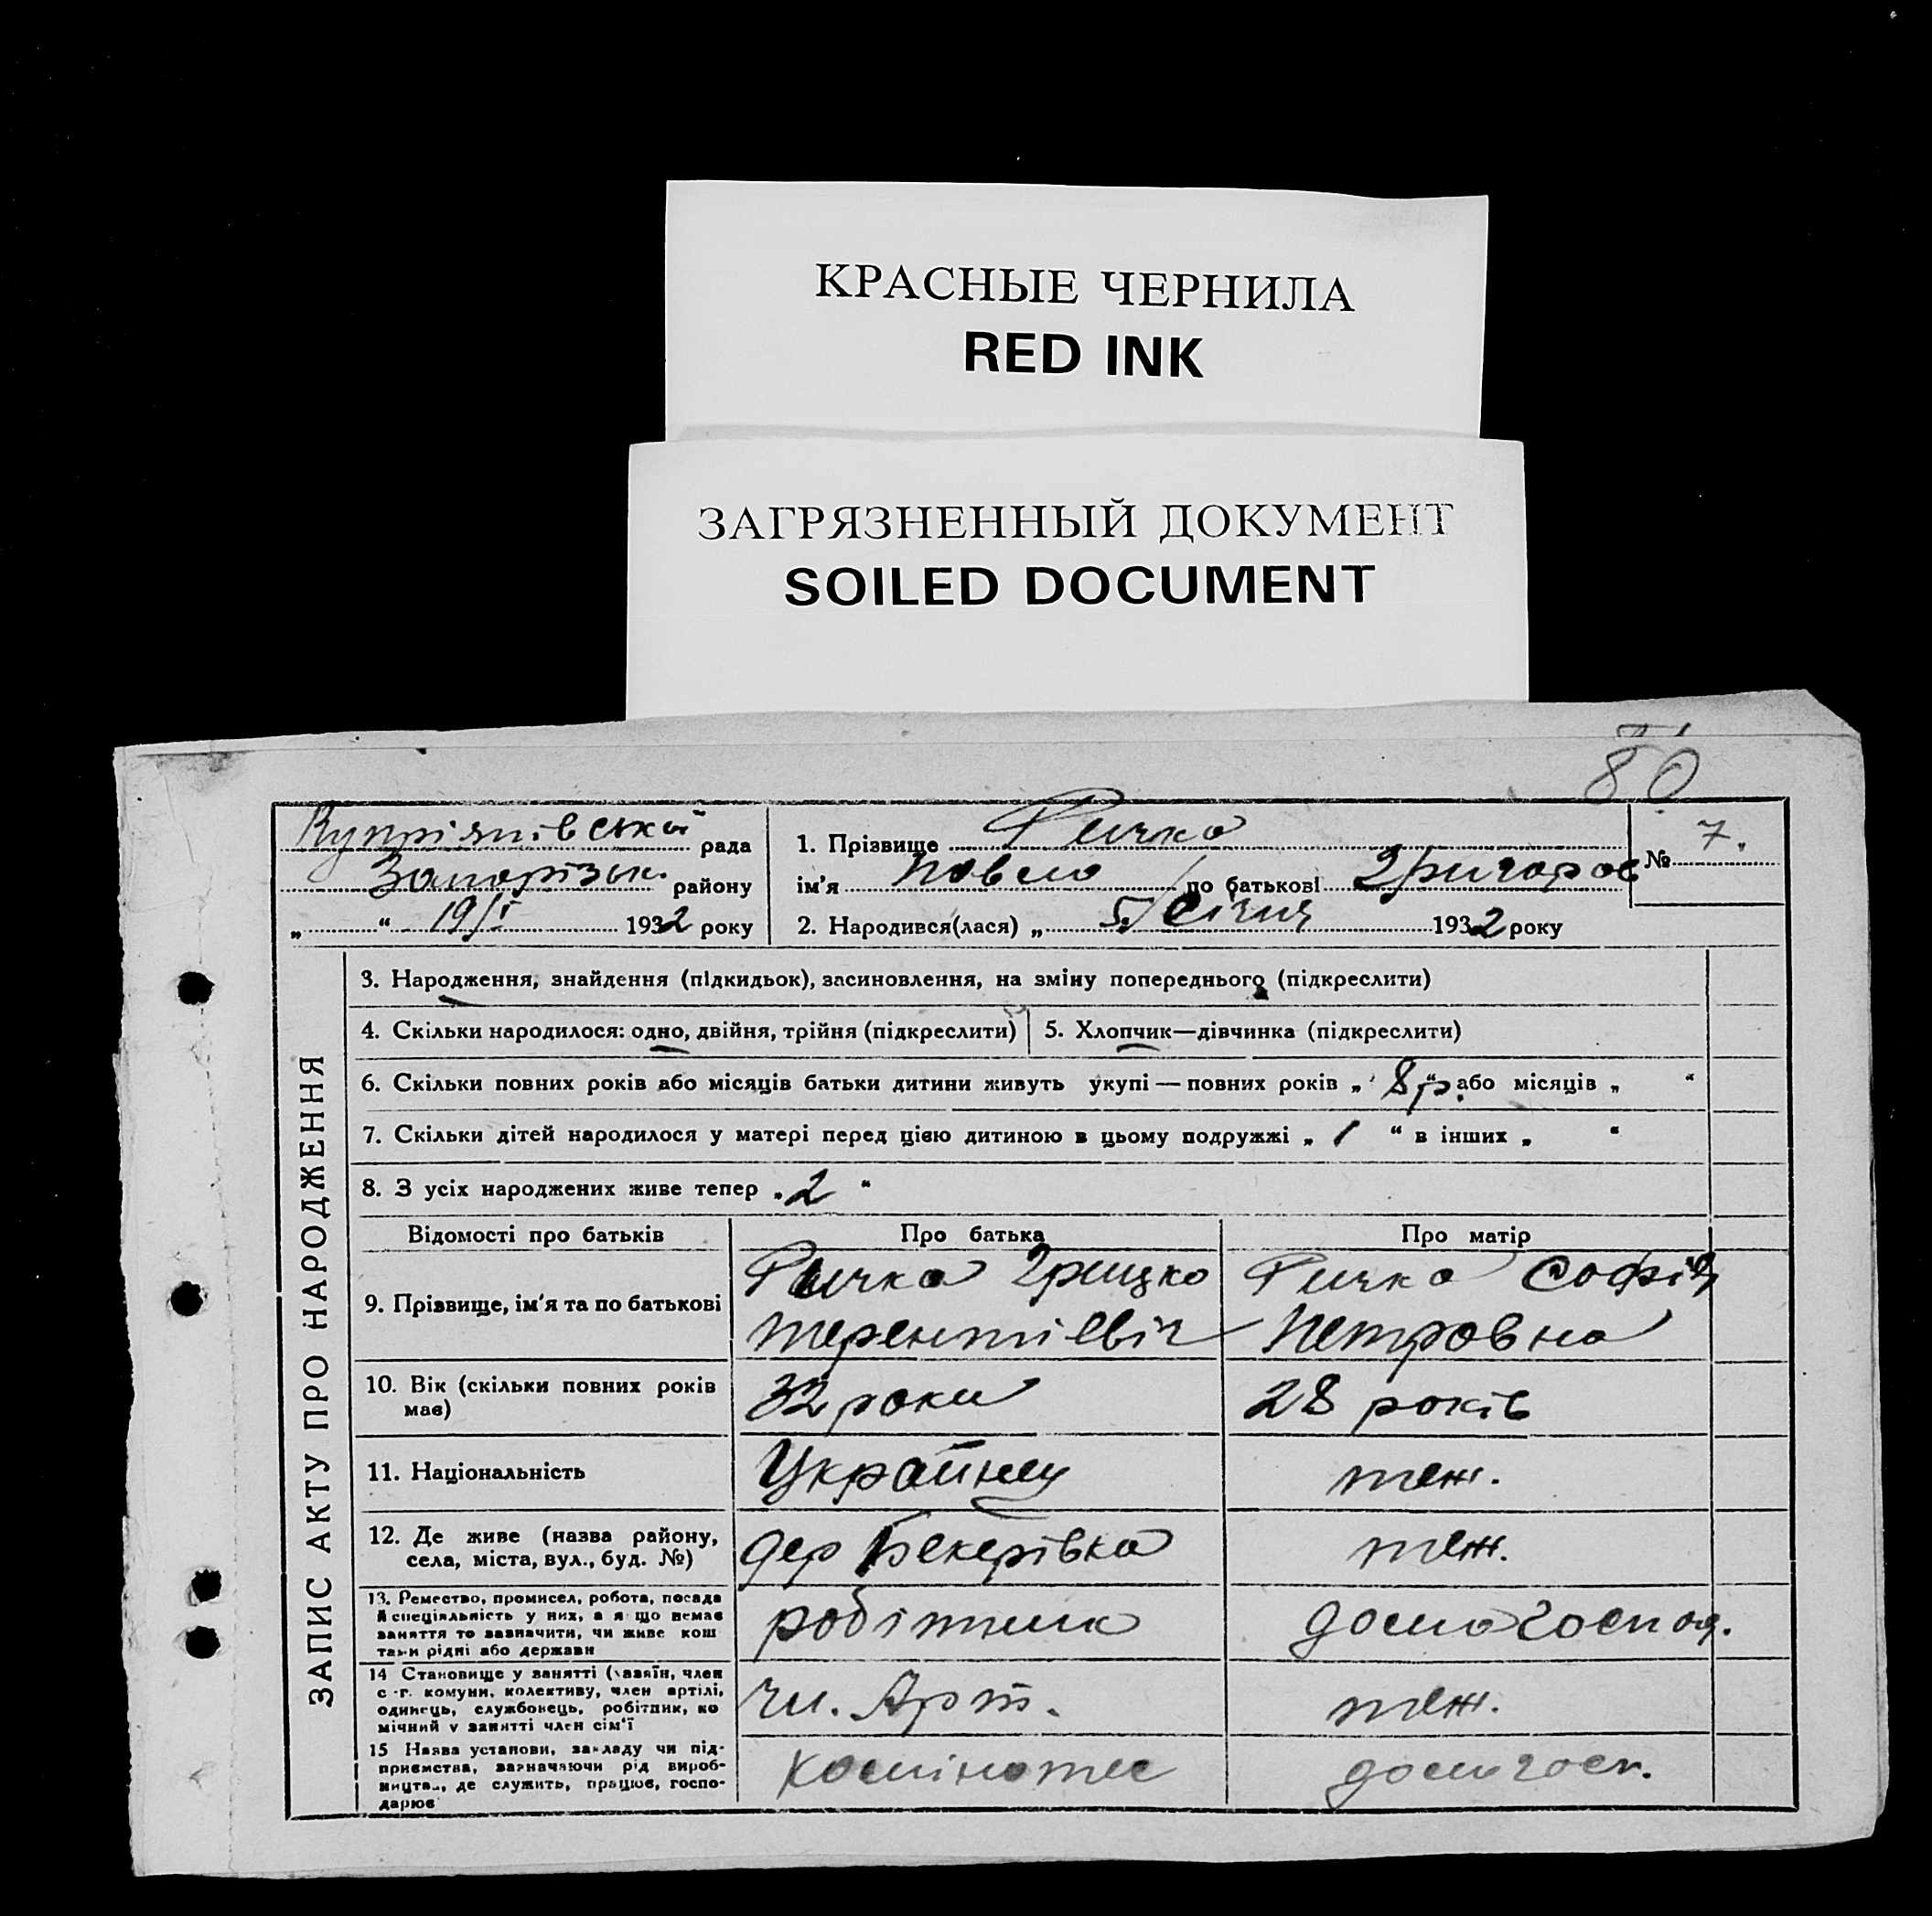 КРАСНЫЕ ЧЕРНИЛА
RED INK
ЗАГРЯЗНЕННЫЙ ДОКУМЕНТ
SOILED DOCUMENT
80
Купріянівської рада
Запорізьк. району
„ “ 19/I 1932 року
1. Прізвище Ричка
ім'я Павло по батькові Григоров
2. Народився(лася) „ 5/Січня 1932 року
№ 7.
ЗАПИС АКТУ ПРО НАРОДЖЕННЯ
3. Народження, знайдення (підкидьок), засиновлення, на зміну попереднього (підкреслити)
4. Скільки народилося: одно, двійня, трійня (підкреслити)
5. Хлопчик—дівчинка (підкреслити)
6. Скільки повних років або місяців батьки дитини живуть укупі — повних років „ 8 р. “ або місяців „ “
7. Скільки дітей народилося у матері перед цією дитиною в цьому подружжі „ 1 “ в інших „ “
8. З усіх народжених живе тепер „ 2 “
Відомості про батьків
Про батька
Про матір
9. Прізвище, ім'я та по батькові
Ричка Грицко
терентієвіч
Ричка Софія
Петровна
10. Вік (скільки повних років
має)
32 роки
28 років
11. Національність
Українец
теж.
12. Де живе (назва району,
села, міста, вул., буд. №)
дер Бекерівка
теж.
13. Ремество, промисел, робота, посада
й специіяльність у них, а я що немає
заняття то зазначити, чи живе кош
тами рідні або держави
робітник
дома господ.
14 Становище у занятті (хазяїн, член
с -г. комуни, колективу, член артілі,
одинець, службовець, робітник, по
мічний у занятті член сім'ї
чл. Арт.
теж.
15 Назва установи, закладу чи під-
приємства, зазначаючи рід вироб-
ництва, де служить, працює, госпо-
дарює
домогосп.